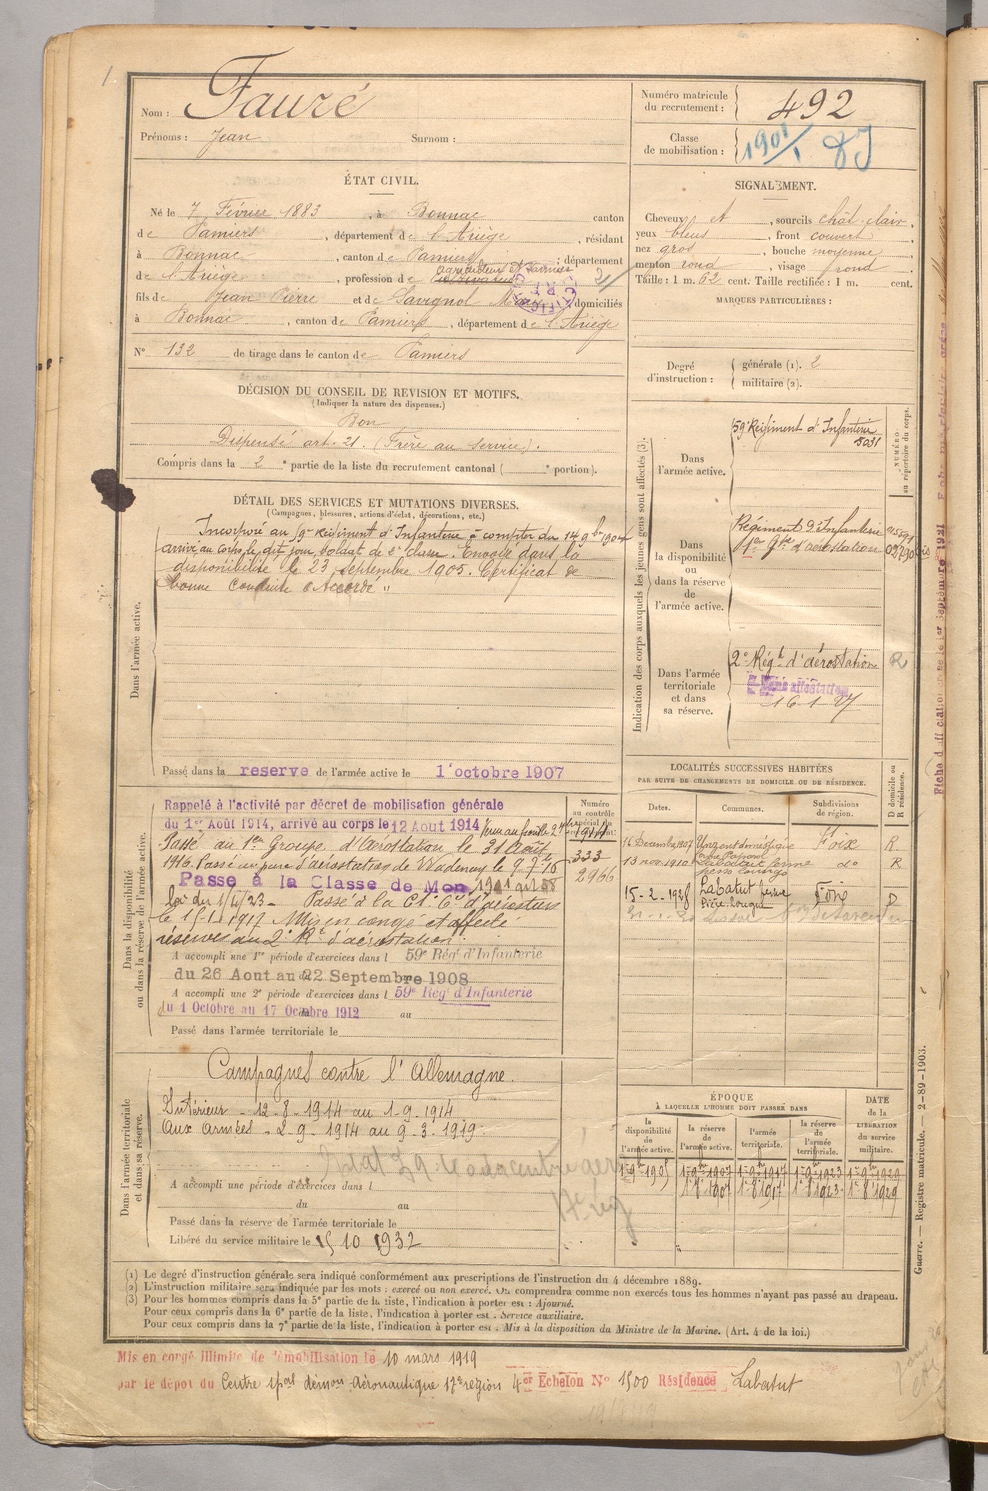 1
Nom : Fauré
Prénoms : Jean Surnom :
Numéro matricule du recrutement : 492
Classe de mobilisation : 1901
ÉTAT CIVIL.
Né le 7 Février 1883, à Bonnac canton
de Pamiers, département de l'Ariège, résidant
à Bonnac, canton de Pamiers, département
de l'Ariège, profession de agriculteur et
fils de Jean Pierre et de Lavignol Marie domiciliés
à Bonnac, canton de Pamiers, département de l'Ariège
N° 132 de tirage dans le canton de Pamiers
SIGNALEMENT.
Cheveux et, sourcils chât. clair,
yeux bleus, front couvert,
nez gros, bouche moyenne,
menton rond, visage rond
Taille : 1 m. 62 cent. Taille rectifiée : 1 m. cent.
MARQUES PARTICULIÈRES :
Degré d'instruction : générale (1). 2
militaire (2).
DÉCISION DU CONSEIL DE REVISION ET MOTIFS.
(Indiquer la nature des dispenses.)
Bon
Dispensé art. 21. (Frère au service).
Compris dans la 2e partie de la liste du recrutement cantonal ( e portion).
DÉTAIL DES SERVICES ET MUTATIONS DIVERSES.
(Campagnes, blessures, actions d'éclat, décorations, etc.)
Dans l'armée active.
Incorporé au 59e Régiment d'Infanterie à compter du 14 9bre 1904
arrivé au corps le dit jour, soldat de 2e classe. Envoyé dans la
disponibilité le 23 septembre 1905. Certificat de
bonne conduite "Accordé"
Passé dans la reserve de l'armée active le 1er octobre 1907
Indication des corps auxquels les jeunes gens sont affectés (3).
NUMÉRO au répertoire du corps.
Dans l'armée active.
59e Régiment d'Infanterie
5031
Dans la disponibilité ou dans la réserve de l'armée active.
Régiment d'Infanterie
1er Gpe d'aérostation
Dans l'armée territoriale et dans sa réserve.
2e Régt d'aérostation R
16-1-27
LOCALITÉS SUCCESSIVES HABITÉES
PAR SUITE DE CHANGEMENTS DE DOMICILE OU DE RÉSIDENCE.
Dates. Communes. Subdivisions de région. D domicile ou R résidence.
16 Décembre 1907 Foix R.
13 nov. 1910 do R
15-2-1928 Labatut ferme Foix D
Dans la disponibilité ou dans la réserve de l'armée active.
Numéro au contrôle spécial du
333
2966
Rappelé à l'activité par décret de mobilisation générale
du 1er Août 1914, arrivé au corps le 12 Aout 1914
Passé au 1er Groupe d'Aérostation le 31 Août
1916. Passé au parc d'aérostation de Vadenay le 9-7-16
Passe à la Classe de Mon 1901 art 58
loi du 1/4/23 - Passé à la Cie d'aérostiers
le 1917 Mis en congé et affecté
réserves au 2e Rt d'aérostation.
A accompli une 1re période d'exercices dans l 59e Régt d'Infanterie
du 26 Aout au 22 Septembre 1908
A accompli une 2e période d'exercices dans l 59e Régt d'Infanterie
du 1 Octobre au 17 Octobre 1912 au
Passé dans l'armée territoriale le
Dans l'armée territoriale et dans sa réserve.
Campagnes contre l'Allemagne.
Intérieur - 12-8-1914 au 1-9-1914
Aux Armées - 2-9-1914 au 9-3-1919
A accompli une période d'exercices dans l
du au
Passé dans la réserve de l'armée territoriale le
Libéré du service militaire le 15 10 1932
ÉPOQUE
À LAQUELLE L'HOMME DOIT PASSER DANS
la disponibilité de l'armée active. la réserve de l'armée active. l'armée territoriale. la réserve de l'armée territoriale.
DATE de la LIBÉRATION du service militaire.
1er 9bre 1905 1er 9bre 1907 1er 9bre 1917 1er 9bre 1923 1er 9bre 1929
1er 8bre 1907 1er 8bre 1917 1er 8bre 1923 1er 8bre 1929
(1) Le degré d'instruction générale sera indiqué conformément aux prescriptions de l'instruction du 4 décembre 1889.
(2) L'instruction militaire sera indiquée par les mots : exercé ou non exercé. On comprendra comme non exercés tous les hommes n'ayant pas passé au drapeau.
(3) Pour les hommes compris dans la 5e partie de la liste, l'indication à porter est : Ajourné.
Pour ceux compris dans la 6e partie de la liste, l'indication à porter est : Service auxiliaire.
Pour ceux compris dans la 7e partie de la liste, l'indication à porter est : Mis à la disposition du Ministre de la Marine. (Art. 4 de la loi.)
Guerre. — Registre matricule. — 2-89-1903.
Mis en congé illimité de démobilisation le 10 mars 1919
par le dépôt du Centre spal démon aéronautique 17e région 4er Echelon N° 1500 Résidence Labatut